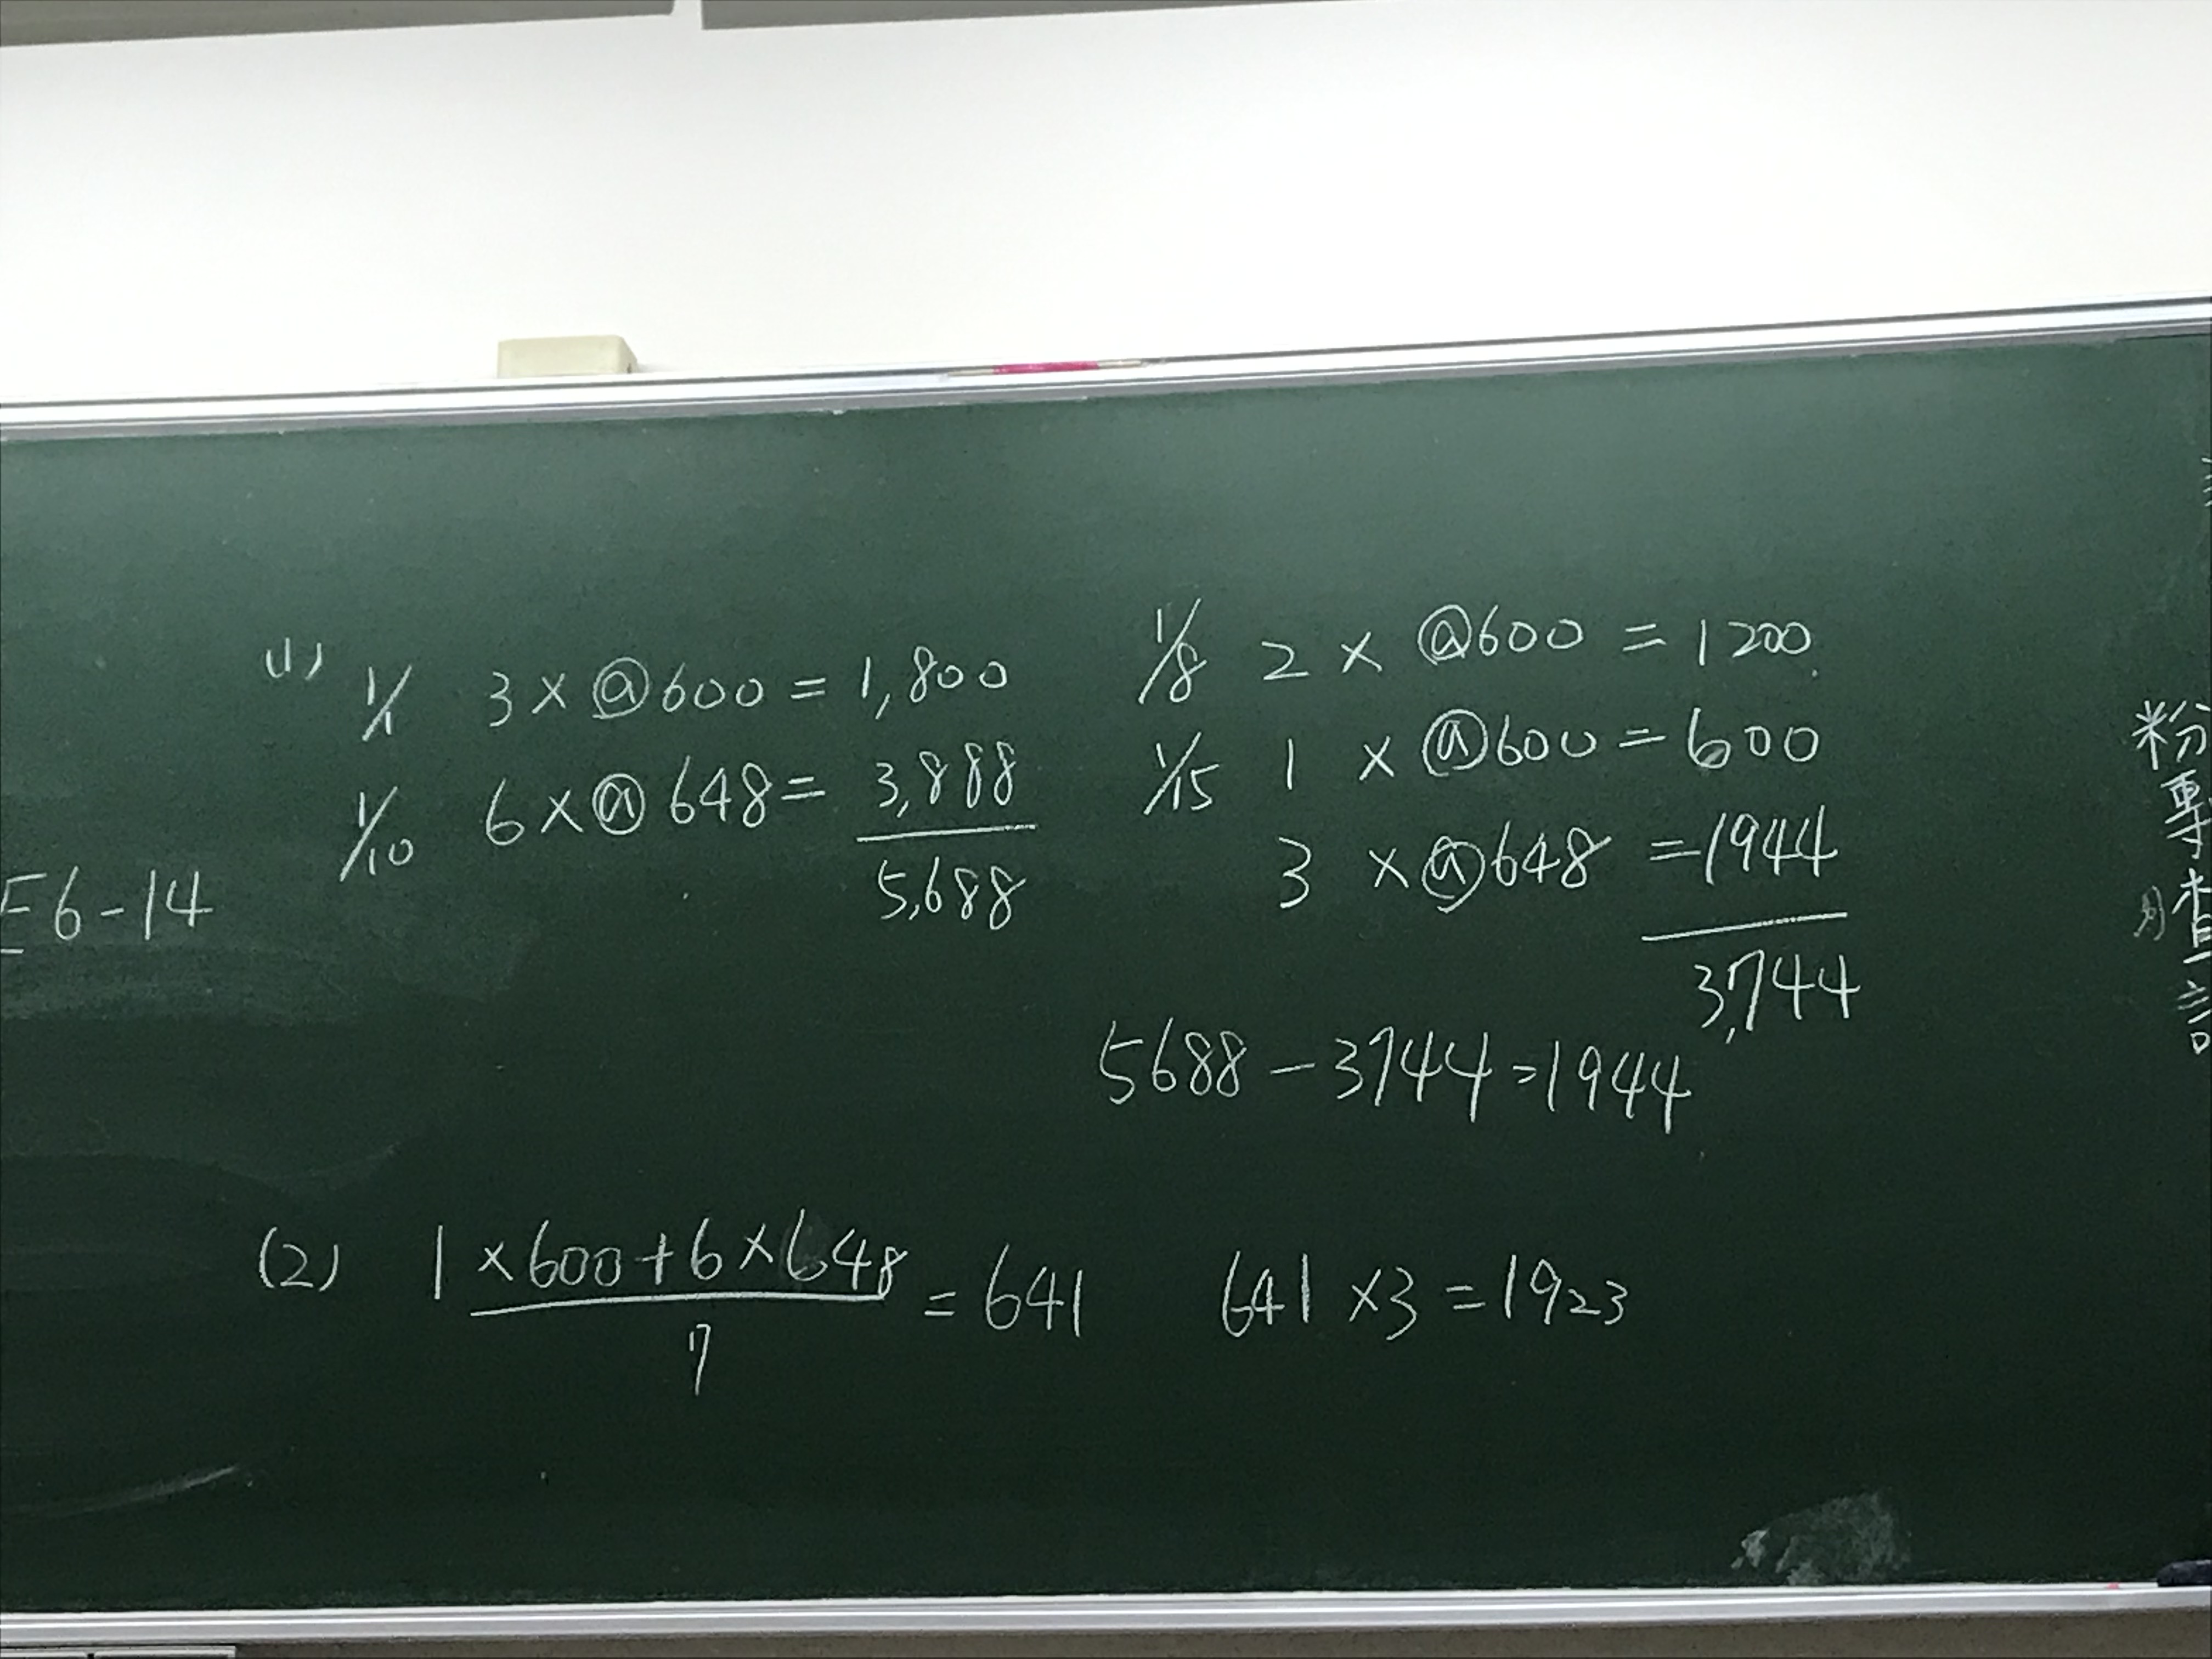 E6-14
(1) 1/1 3 × @600 = 1,800
1/10 6 × @648 = 3,888
5,688
1/8 2 × @600 = 1200
1/15 1 × @600 = 600
3 × @648 = 1944
3,744
5688 - 3744 = 1944
(2) 1 × 600 + 6 × 648 = 641
7
641 × 3 = 1923
粉專查詢